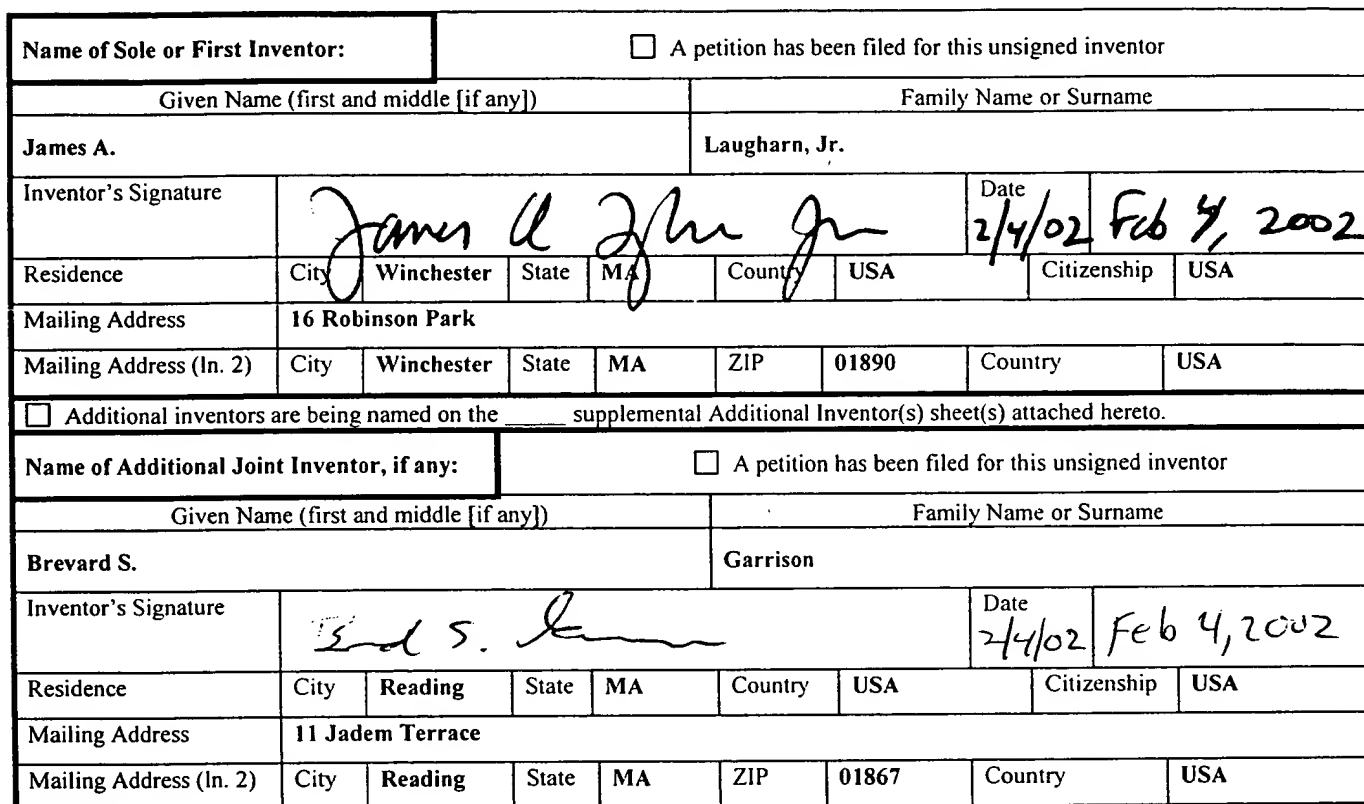 Name of Sole or First Inventor: ☐ A petition has been filed for this unsigned inventor
Given Name (first and middle [if any]) Family Name or Surname
James A. Laugharn, Jr.
Inventor's Signature James A Jr Date 2/4/02 Feb 4, 2002
Residence City Winchester State MA Country USA Citizenship USA
Mailing Address 16 Robinson Park
Mailing Address (ln. 2) City Winchester State MA ZIP 01890 Country USA
☐ Additional inventors are being named on the _____ supplemental Additional Inventor(s) sheet(s) attached hereto.
Name of Additional Joint Inventor, if any: ☐ A petition has been filed for this unsigned inventor
Given Name (first and middle [if any]) Family Name or Surname
Brevard S. Garrison
Inventor's Signature S. Date 2/4/02 Feb 4, 2002
Residence City Reading State MA Country USA Citizenship USA
Mailing Address 11 Jadem Terrace
Mailing Address (ln. 2) City Reading State MA ZIP 01867 Country USA